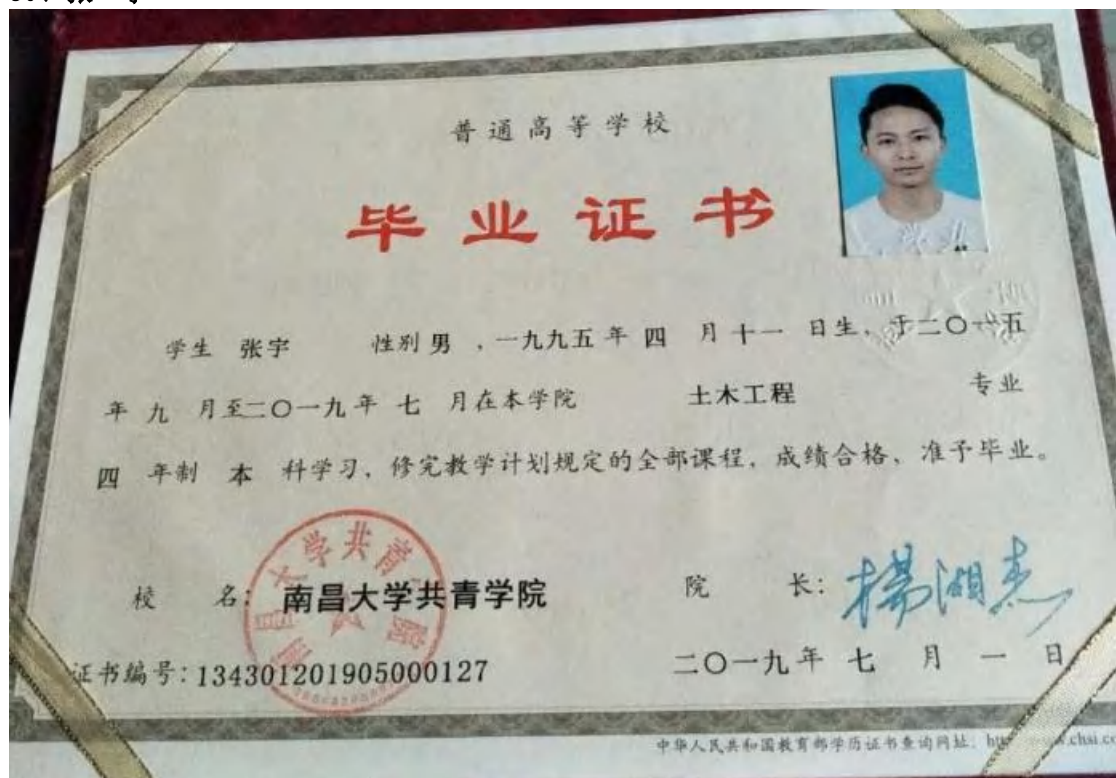 普通高等学校
毕业证书
学生 张宇 性别 男 ，一九九五年 四 月 十一 日生，于二〇一五
年 九 月至二〇一九年 七 月在本学院 土木工程 专业
四 年制 本 科学习，修完教学计划规定的全部课程，成绩合格，准予毕业。
校 名： 南昌大学共青学院
院 长： 杨湘杰
南昌大学共青学院
证书编号：134301201905000127
二〇一九年 七 月 一 日
中华人民共和国教育部学历证书查询网址：